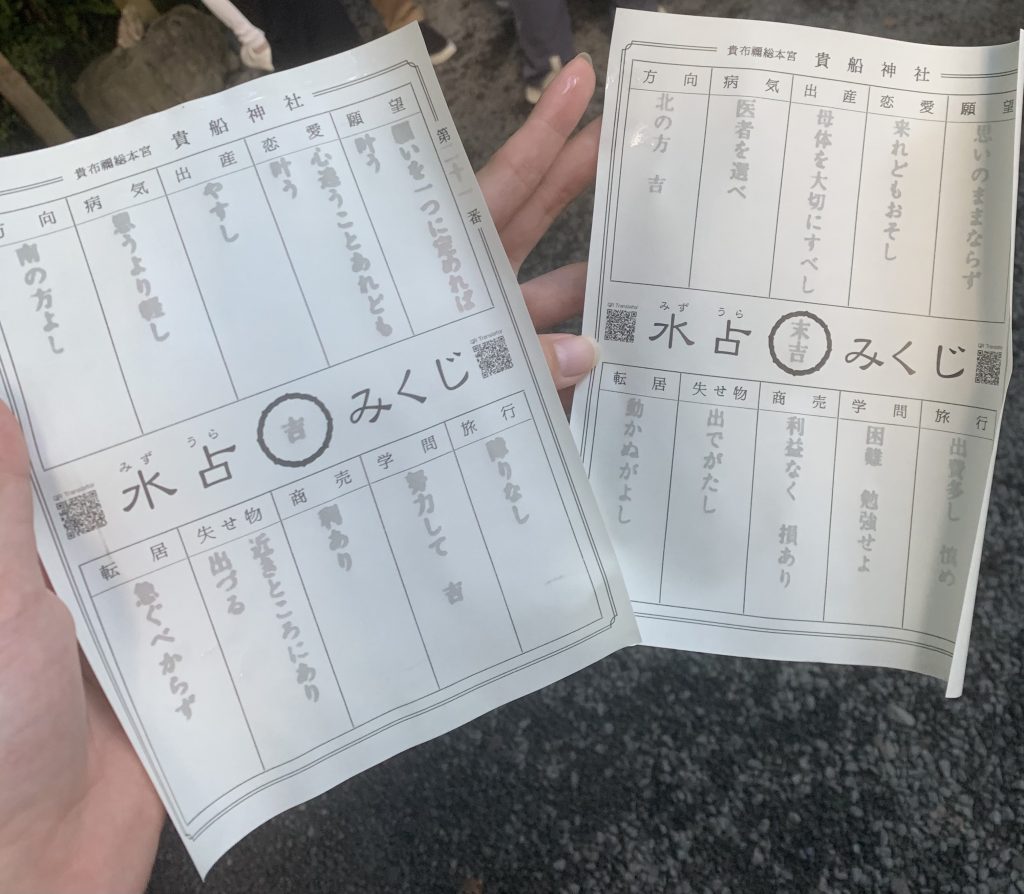 貴布禰総本宮 貴船神社
第二十一番
願望
願いを一つに定めれば
叶う
恋愛
心迷うことあれども
叶う
出産
やすし
病気
思うより軽し
方向
南の方よし
みず うら
水占 吉 みくじ
QR Translator
QR Translator
旅行
障りなし
学問
努力して 吉
商売
利あり
失せ物
近きところにあり
出づる
転居
急ぐべからず
貴布禰総本宮 貴船神社
願望
思いのままならず
恋愛
来れどもおそし
出産
母体を大切にすべし
病気
医者を選べ
方向
北の方 吉
みず うら
水占 末吉 みくじ
QR Translator
旅行
出費多し 慎め
学問
困難 勉強せよ
商売
利益なく 損あり
失せ物
出でがたし
転居
動かぬがよし